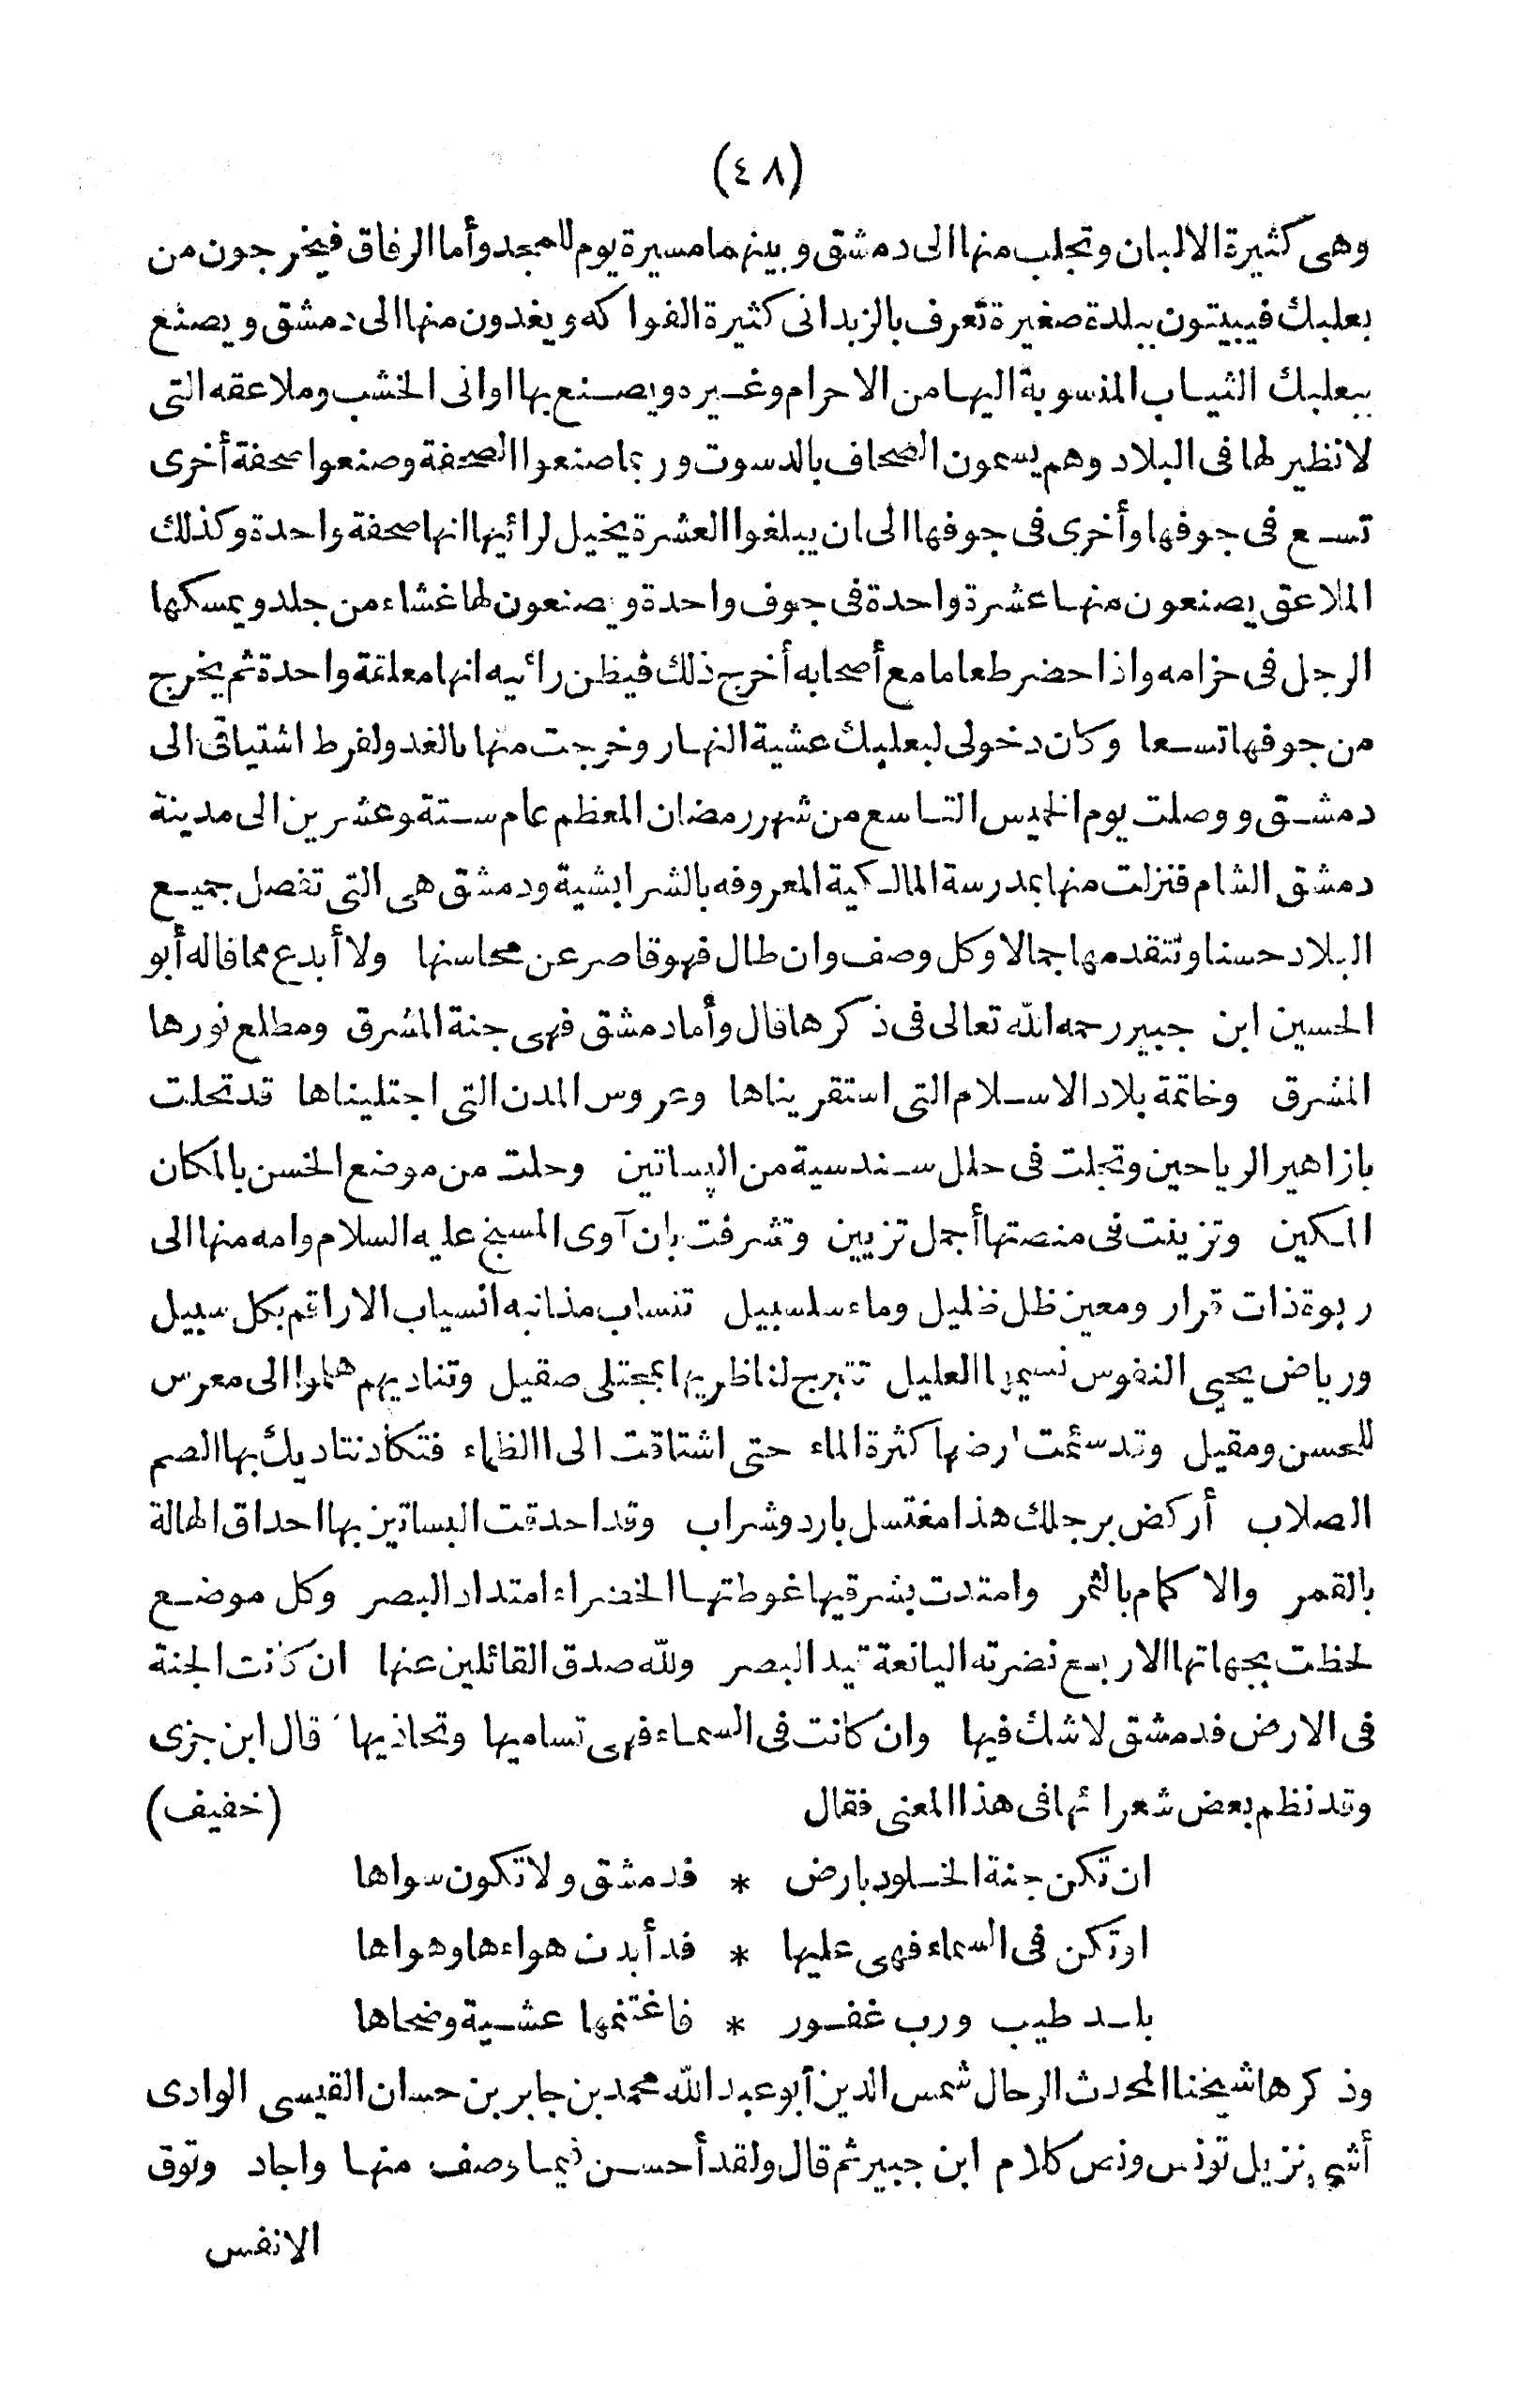 (٤٨)
وهى كثيرة الالبان وتجلب منها الى دمشق وبينهما مسيرة يوم للمجد وأما الرفاق فيخرجون من
بعلبك فيبيتون ببلدة صغيرة تعرف بالزبدانى كثيرة الفواكه ويغدون منها الى دمشق ويصنع
ببعلبك الثياب المنسوبة اليها من الاحرام وغيره ويصنع بها اوانى الخشب وملاعقه التى
لا نظير لها فى البلاد وهم يسمون الصحاف بالدسوت وربما صنعوا الصحفة وصنعوا صحفة أخرى
تسع فى جوفها وأخرى فى جوفها الى ان يبلغوا العشرة يخيل لرائيها انها صحفة واحدة وكذلك
الملاعق يصنعون منها عشرة واحدة فى جوف واحدة ويصنعون لها غشاء من جلد ويمسكها
الرجل فى حزامه واذا حضر طعاما مع أصحابه أخرج ذلك فيظن رائيه انها معلقة واحدة ثم يخرج
من جوفها تسعا وكان دخولى لبعلبك عشية النهار وخرجت منها بالغد ولفرط اشتياقى الى
دمشق ووصلت يوم الخميس التاسع من شهر رمضان المعظم عام ستة وعشرين الى مدينة
دمشق الشام فنزلت منها بمدرسة المالكية المعروفه بالشرابشية ودمشق هى التى تفضل جميع
البلاد حسنا وتتقدمها جمالا وكل وصف وان طال فهو قاصر عن محاسنها ولا أبدع مما قاله أبو
الحسين ابن جبير رحمه الله تعالى فى ذكرها قال وأما دمشق فهى جنة المشرق ومطلع نورها
المشرق وخاتمة بلاد الاسلام التى استقريناها وعروس المدن التى اجتليناها قد تحلت
بازاهير الرياحين وتجلت فى حلل سندسية من البساتين وحلت من موضع الحسن بالمكان
المكين وتزينت فى منصتها أجمل تزيين وتشرفت بان آوى المسيح عليه السلام وامه منها الى
ربوة ذات قرار ومعين ظل ظليل وماء سلسبيل تنساب مذانبه انسياب الاراقم بكل سبيل
ورياض يحيى النفوس نسيمها العليل تتبرج لناظريها بمجتلى صقيل وتناديهم هلموا الى معرس
للحسن ومقيل وقد سئمت ارضها كثرة الماء حتى اشتاقت الى الظماء فتكاد تناديك بها الصم
الصلاب أركض برجلك هذا مغتسل بارد وشراب وقد احدقت البساتين بها احداق الهالة
بالقمر والاكمام بالثمر وامتدت بشرقيها غوطتها الخضراء امتداد البصر وكل موضع
لحظت بجهاتها الاربع نضرته اليانعة قيد البصر ولله صدق القائلين عنها ان كانت الجنة
فى الارض فدمشق لا شك فيها وان كانت فى السماء فهى تساميها وتحاذيها قال ابن جزى
وقد نظم بعض شعرائها فى هذا المعنى فقال (خفيف)
ان تكن جنة الخلود بارض * فدمشق ولا تكون سواها
او تكن فى السماء فهى عليها * قد أبدت هواءها وهواها
بلد طيب ورب غفور * فاغتنمها عشية وضحاها
وذكرها شيخنا المحدث الرحال شمس الدين أبو عبد الله محمد بن جابر بن حسان القيسى الوادى
أشى نزيل تونس ونص كلام ابن جبير ثم قال ولقد أحسن فيما وصف منها واجاد وتوق
الانفس